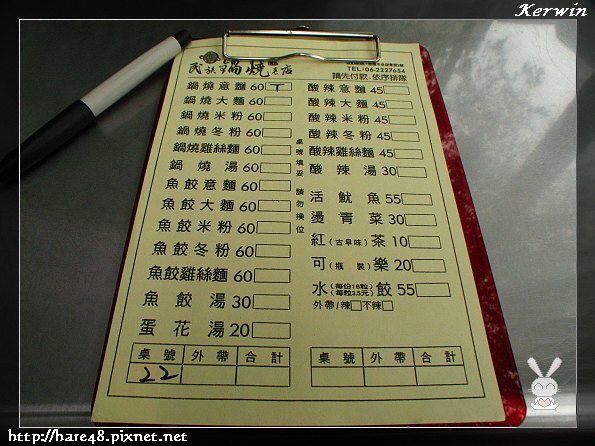 Kerwin
民族鍋燒老店
TEL:06-2227654
請先付款.依序排隊
鍋燒意麵60 T
鍋燒大麵60
鍋燒米粉60
鍋燒冬粉60
鍋燒雞絲麵60
鍋燒湯60
魚餃意麵60
魚餃大麵60
魚餃米粉60
魚餃冬粉60
魚餃雞絲麵60
魚餃湯30
蛋花湯20
桌號填妥 請勿換位
酸辣意麵45
酸辣大麵45
酸辣米粉45
酸辣冬粉45
酸辣雞絲麵45
酸辣湯30
活魷魚55
燙青菜30
紅(古早味)茶10
可(瓶裝)樂20
水(每份16粒)(每粒3.5元)餃55
外帶/辣 不辣
桌號 外帶 合計
22
桌號 外帶 合計
http://hare48.pixnet.net